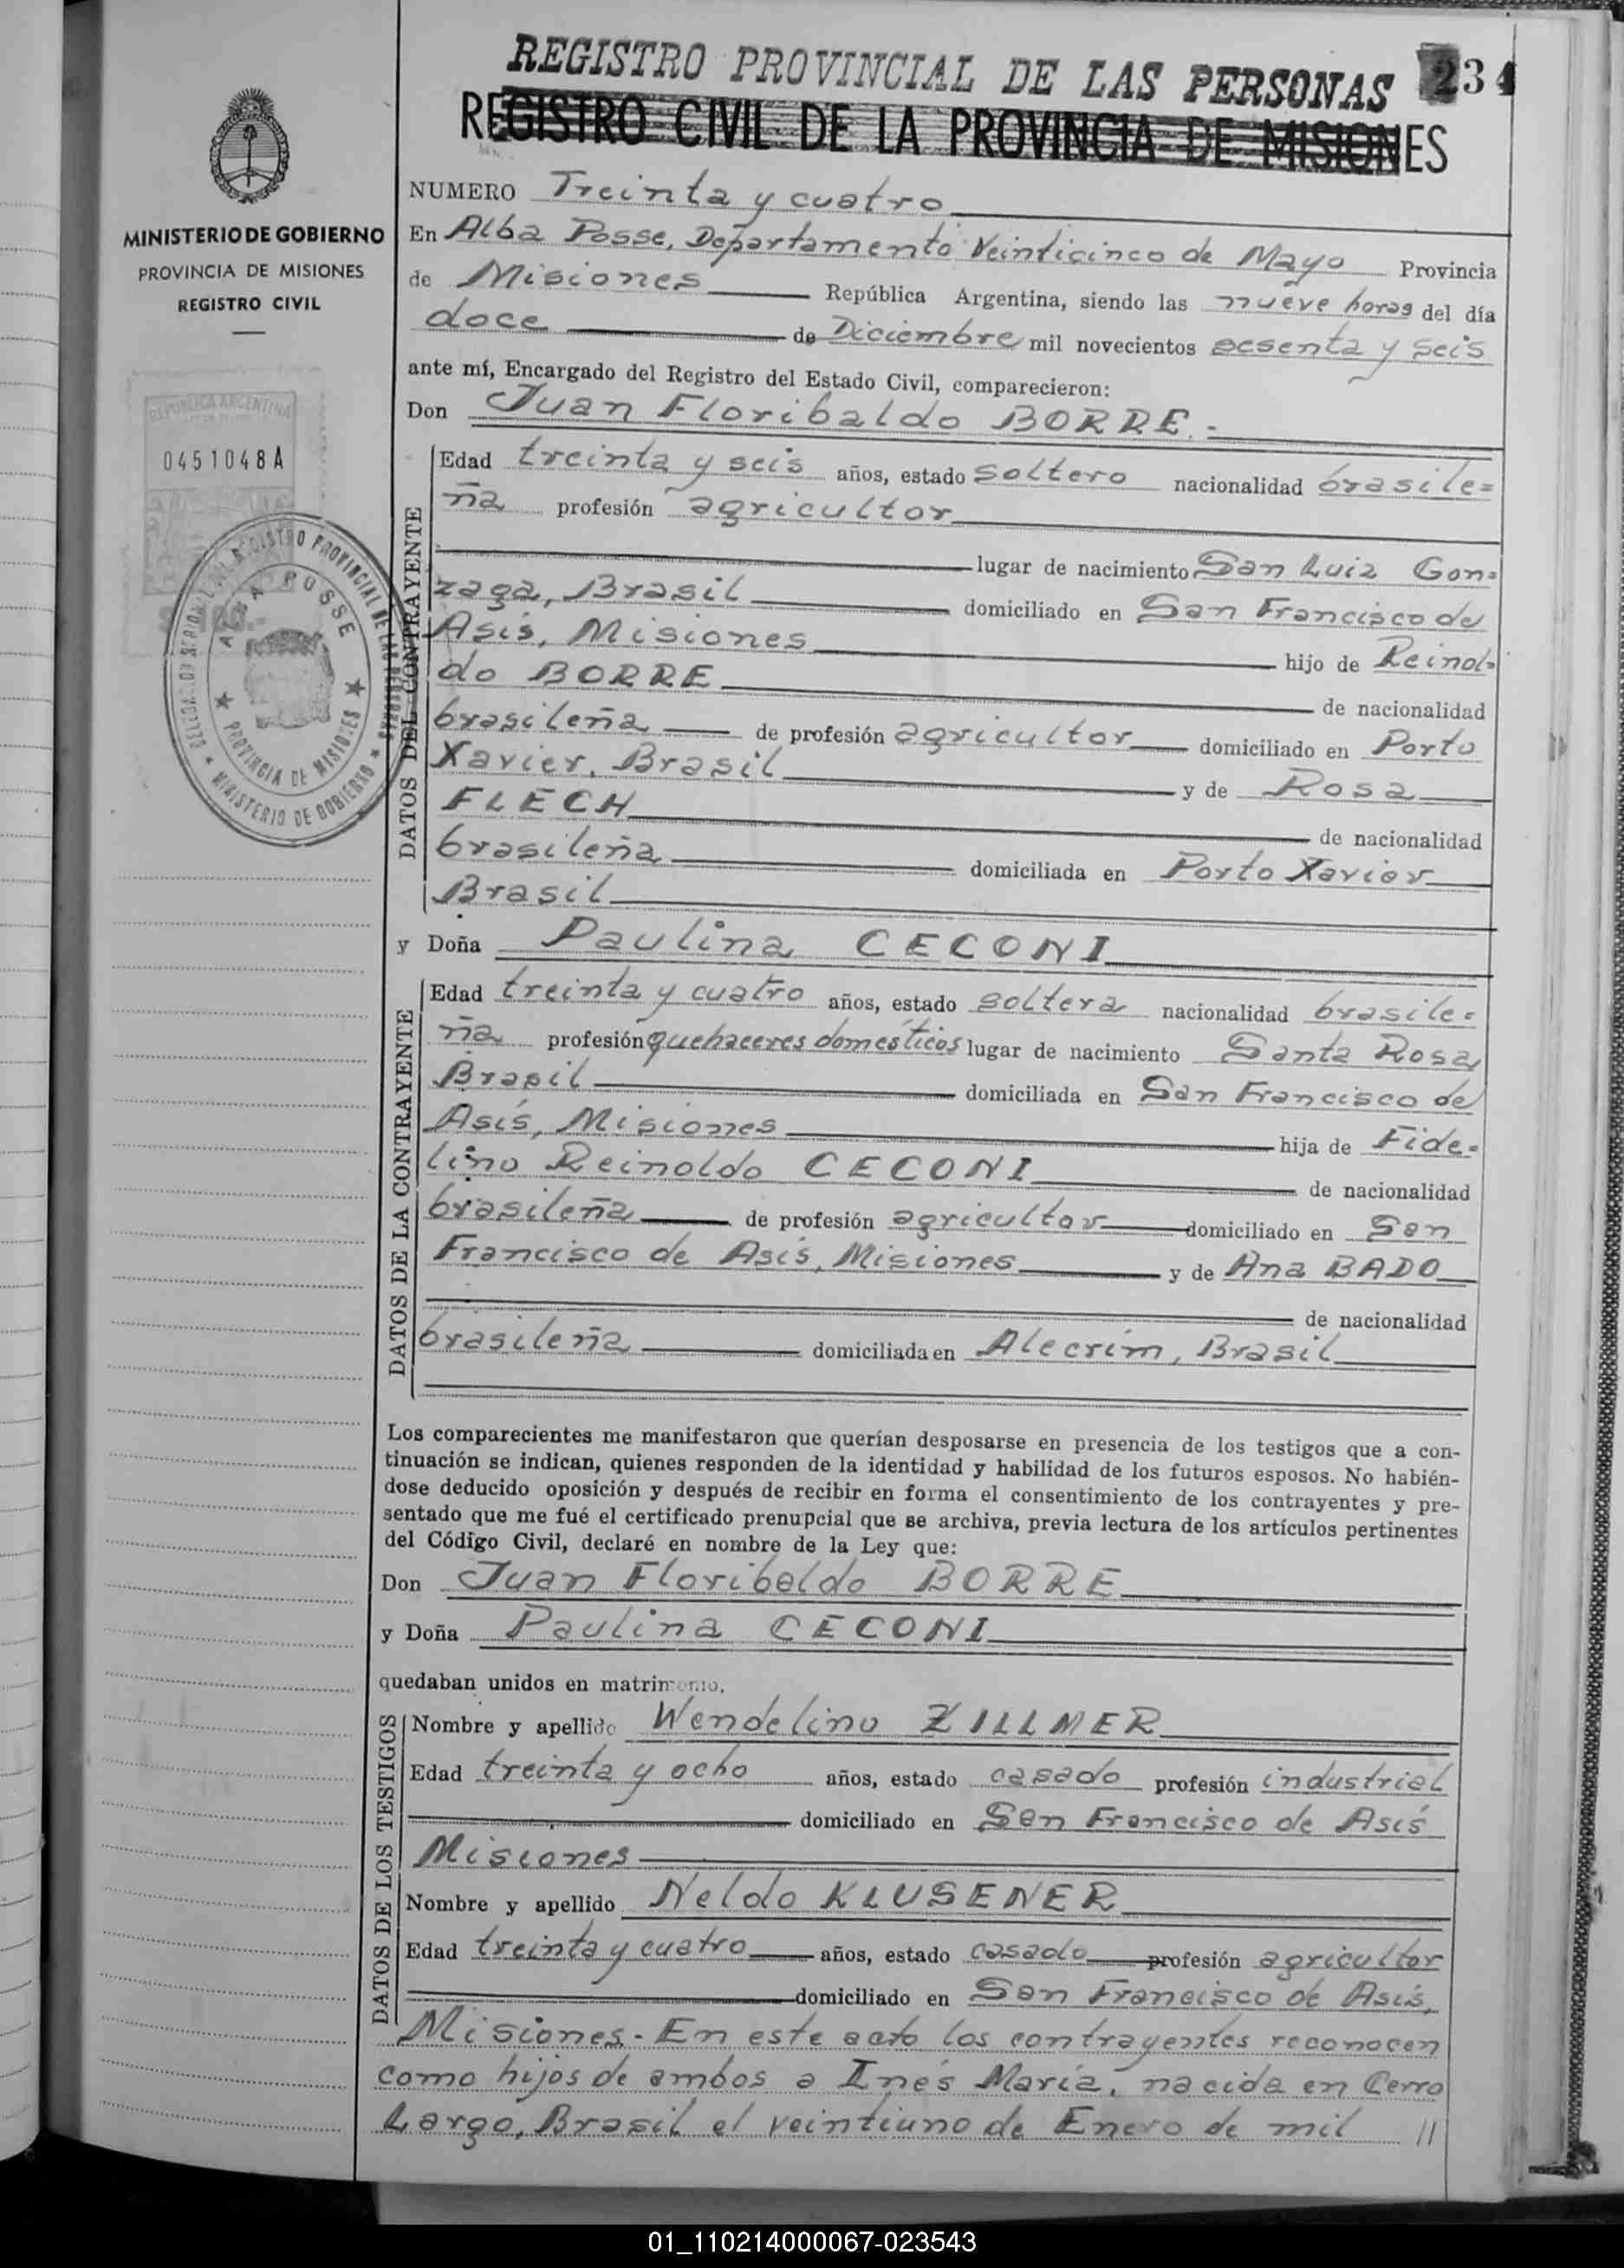 REGISTRO PROVINCIAL DE LAS PERSONAS 234
REGISTRO CIVIL DE LA PROVINCIA DE MISIONES
MINISTERIO DE GOBIERNO
PROVINCIA DE MISIONES
REGISTRO CIVIL
REPUBLICA ARGENTINA
0451048A
DELEGACION SERIDA DEL REGISTRO PROVINCIAL DE LAS PERSONAS
ALBA POSSE
PROVINCIA DE MISIONES
MINISTERIO DE GOBIERNO
NUMERO Treinta y cuatro
En Alba Posse, Departamento Veinticinco de Mayo Provincia
de Misiones República Argentina, siendo las nueve horas del día
doce de Diciembre mil novecientos sesenta y seis
ante mí, Encargado del Registro del Estado Civil, comparecieron:
Don Juan Floribaldo BORRE.-
DATOS DEL CONTRAYENTE
Edad treinta y seis años, estado soltero nacionalidad brasile=
ña profesión agricultor
lugar de nacimiento San Luiz Gon=
zaga, Brasil domiciliado en San Francisco de
Asís, Misiones hijo de Reinol=
do BORRE de nacionalidad
brasileña de profesión agricultor domiciliado en Porto
Xavier, Brasil y de Rosa
FLECH de nacionalidad
brasileña domiciliada en Porto Xavier
Brasil
y Doña Paulina CECONI
DATOS DE LA CONTRAYENTE
Edad treinta y cuatro años, estado soltera nacionalidad brasile=
ña profesión quehaceres domésticos lugar de nacimiento Santa Rosa
Brasil domiciliada en San Francisco de
Asís, Misiones hija de Fide=
lino Reinoldo CECONI de nacionalidad
brasileña de profesión agricultor domiciliado en San
Francisco de Asís, Misiones y de Ana BADO
de nacionalidad
brasileña domiciliada en Alecrim, Brasil
Los comparecientes me manifestaron que querían desposarse en presencia de los testigos que a con-
tinuación se indican, quienes responden de la identidad y habilidad de los futuros esposos. No habién-
dose deducido oposición y después de recibir en forma el consentimiento de los contrayentes y pre-
sentado que me fué el certificado prenupcial que se archiva, previa lectura de los artículos pertinentes
del Código Civil, declaré en nombre de la Ley que:
Don Juan Floribaldo BORRE
y Doña Paulina CECONI
quedaban unidos en matrimonio.
DATOS DE LOS TESTIGOS
Nombre y apellido Wendelino ZILLMER
Edad treinta y ocho años, estado casado profesión industrial
domiciliado en San Francisco de Asís
Misiones
Nombre y apellido Neldo KLUSENER
Edad treinta y cuatro años, estado casado profesión agricultor
domiciliado en San Francisco de Asís,
Misiones.- En este acto los contrayentes reconocen
como hijos de ambos a Inés María, nacida en Cerro
Largo, Brasil el veintiuno de Enero de mil //
01_110214000067-023543